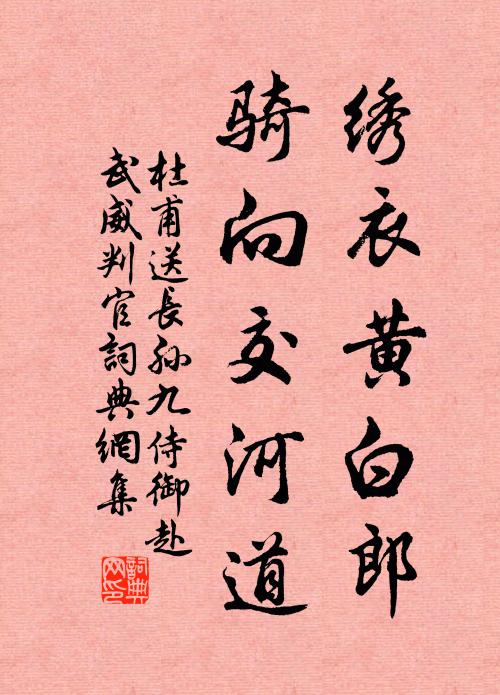 绣衣黄白郎
骑向交河道
杜甫送長孙九侍御赴
武威判官詞典網集
詞典
网印